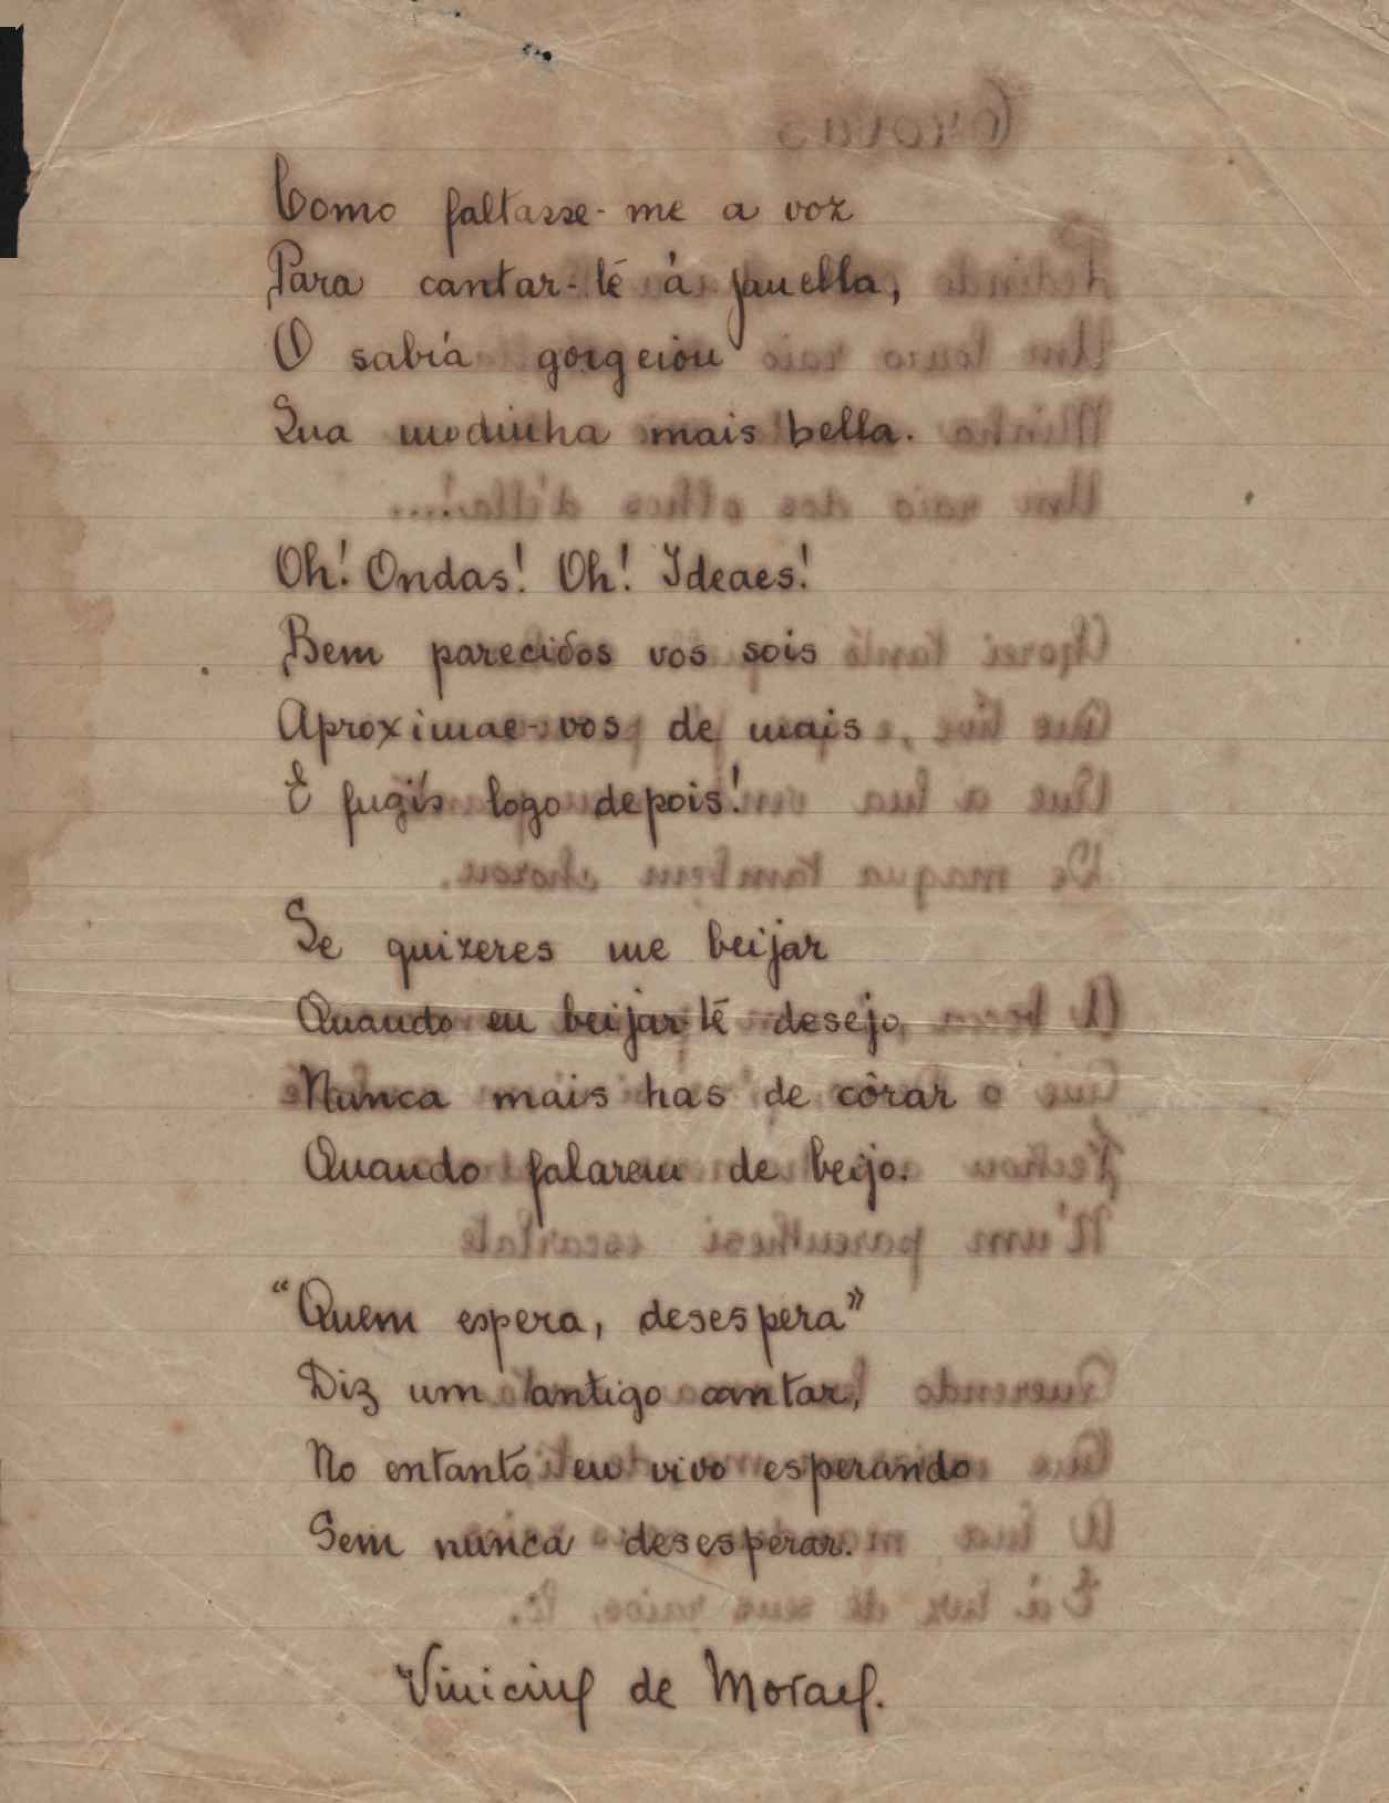 Como faltasse-me a voz
Para cantar-té à janella,
O sabiá gorgeiou
Sua modinha mais bella.
Oh! Ondas! Oh! Ideaes!
Bem parecidos vos sois
Aproximae-vos de mais
E fugís logo depois!
Se quizeres me beijar
Quando eu beijar-té desejo,
Nunca mais has de côrar
Quando falarem de beijo.
"Quem espera, desespera"
Diz um antigo cantar,
No entanto eu vivo esperando
Sem nunca desesperar.
Vinicius de Moraes.